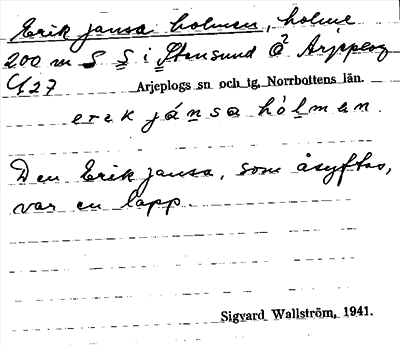 Erik jansa holmen, holme
200 m S § i Stensund å Arjeplog
U27
Arjeplogs sn och tg, Norrbottens län.
erek jánsa hòlmen.
Den Erik jansa, som åsyftas,
var en lapp.
Sigvard Wallström, 1941.